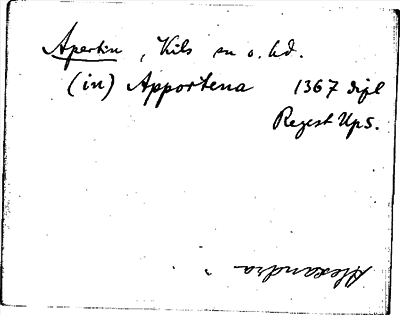 Apertin, Kils sn o. hd.
(in) Apportena 1367 dipl
Regest Ups.
Alexandra